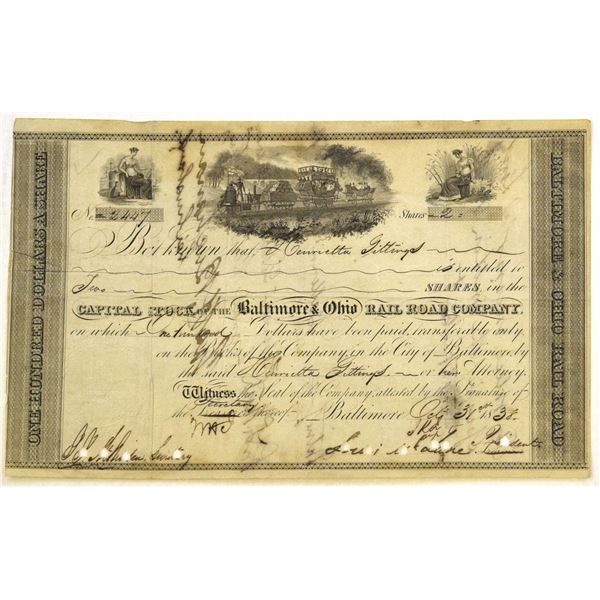 ONE HUNDRED DOLLARS A SHARE
BALTIMORE & OHIO RAIL ROAD
No. 2447 Shares 2
Be it known that Henrietta Gittings
is entitled to
Two SHARES in the
CAPITAL STOCK OF THE Baltimore & Ohio RAIL ROAD COMPANY,
on which Dollars have been paid, transferable only
on the Books of the Company, in the City of Baltimore, by
the said Henrietta Gittings or her Attorney.
Witness the Seal of the Company, attested by the Signature of
Secretary
the thereof Baltimore Oct 31st 1838
Louis McLane President